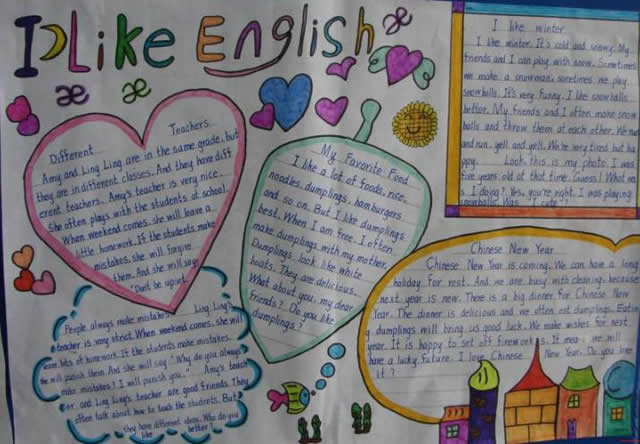 I Like English
æ
æ
æ
Different Teachers
Amy and Ling Ling are in the same grade, but
they are in different classes. And they have diff
erent teachers. Amy's teacher is very nice.
She often plays with the students at school.
When weekend comes, she will leave a
little homework. If the students make
mistakes, she will forgive
them. And she will say
"Don't be upset.
People always make mistakes. Ling Ling's
teacher is very strict. When weekend comes, she will
leave lots of homework. If the students make mistakes,
she will punish them. And she will say "Why do you always
make mistakes? I will punish you." Amy's teach
er and Ling Ling's teacher are good friends. They
often talk about how to teach the students. But
they have different ideas. Who do you
like better?
My Favorite Food
I like a lot of foods, rice,
noodles, dumplings, hamburgers
and so on. But I like dumplings
best. When I am free, I often
make dumplings with my mother.
Dumplings look like white
boats. They are delicious.
What about you, my dear
friends? Do you like
dumplings?
I like winter
I like winter. It's cold and snowy. My
friends and I can play with snow. Sometimes
we make a snowman, sometimes we play
snowballs. It's very funny. I like snowballs
better. My friends and I often make snow
balls and throw them at each other. We run
and run, yell and yell. We're very tired but ha
ppy. Look, this is my photo. I was
five years old at that time. Guess! What wa
s I doing? Yes, you're right. I was playing
snowballs. Was I cute?
Chinese New Year
Chinese New Year is coming. We can have a long
holiday. For rest. And we are busy with cleaning, because
next year is new. There is a big dinner for Chinese New
Year. The dinner is delicious and we often eat dumplings. Eatin
g dumplings will bring us good luck. We make wishes for next
year. It is happy to set off fireworks. It mea we will
have a lucky future. I love Chinese New Year. Do you like
it?